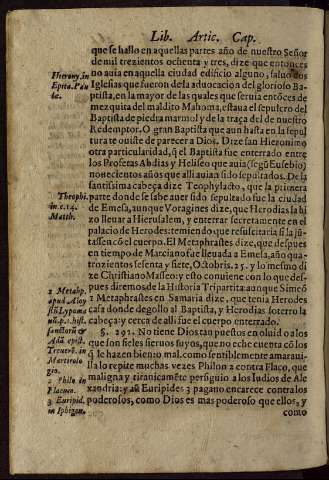 Lib. Artic. Cap.
que se hallo en aquellas partes año de nuestro Señor
de mil trezientos ochenta y tres, dize que entonces
no auia en aquella ciudad edificio alguno, saluo dos
Iglesias que fueron de la aduocacion del glorioso Ba-
ptista, en la mayor de las quales que seruia entõces de
mezquita del maldito Mahoma, estaua el sepulcro del
Baptista de piedra marmol y de la traça del de nuestro
Redemptor. O gran Baptista que aun hasta en la sepul
tura te ouiste de parecer a Dios. Dize san Hieronimo
otra particularidad, q̃ el Baptista fue enterrado entre
los Profetas Abdias y Heliseo que auia (segũ Eusebio)
nouecientos años que alli auian sido sepultados. De la
santissima cabeça dize Teophylacto, que la primera
parte donde se sabe auer sido sepultado fue la ciudad
de Emesa, aunque Voragines dize, que Herodias la hi
zo lleuar a Hierusalem, y enterrar secretamente en el
palacio de Herodes: temiendo que resuscitaria si la jũ-
tassen cõ el cuerpo. El Metaphrastes dize, que despues
en tiempo de Marciano fue lleuada a Emesa, año qua-
trozientos sesenta y siete, Octobris. 25. y lo mesmo di
ze Christiano Masseo: y esto conuiene con lo que des-
pues diremos de la Historia Tripartita: aunque Simeõ
2 Metaphrastes en Samaria dize, que tenia Herodes
casa donde degollo al Baptista, y Herodias soterro la
cabeça: y cerca de alli fue el cuerpo enterrado.
§. 291. No tiene Dios tan puestos en oluido a los
que son fieles sieruos suyos, que no eche cuenta cõ los
q̃ le hazen bien o mal. como sentiblemente a maraui-
lla lo repite muchas vezes Philon a contra Flaco, que
maligna y tiranicamẽte persiguio a los Iudios de Ale
xandria: y aũ Euripides 3 pagano encarece contra los
poderosos, como Dios es mas poderoso que ellos, y
como
Hierony. in
Epita. Pau
læ.
Theophi.
in c. 14.
Matth.
2 Metaph.
apud Aloy
siũ Lypoma
nũ. p. 1. hist.
sanctorũ &
Adã. epist.
Treuerẽ. in
Martirolo
gio.
2 Philo in
Flaccum.
3 Euripid.
in Iphigen.